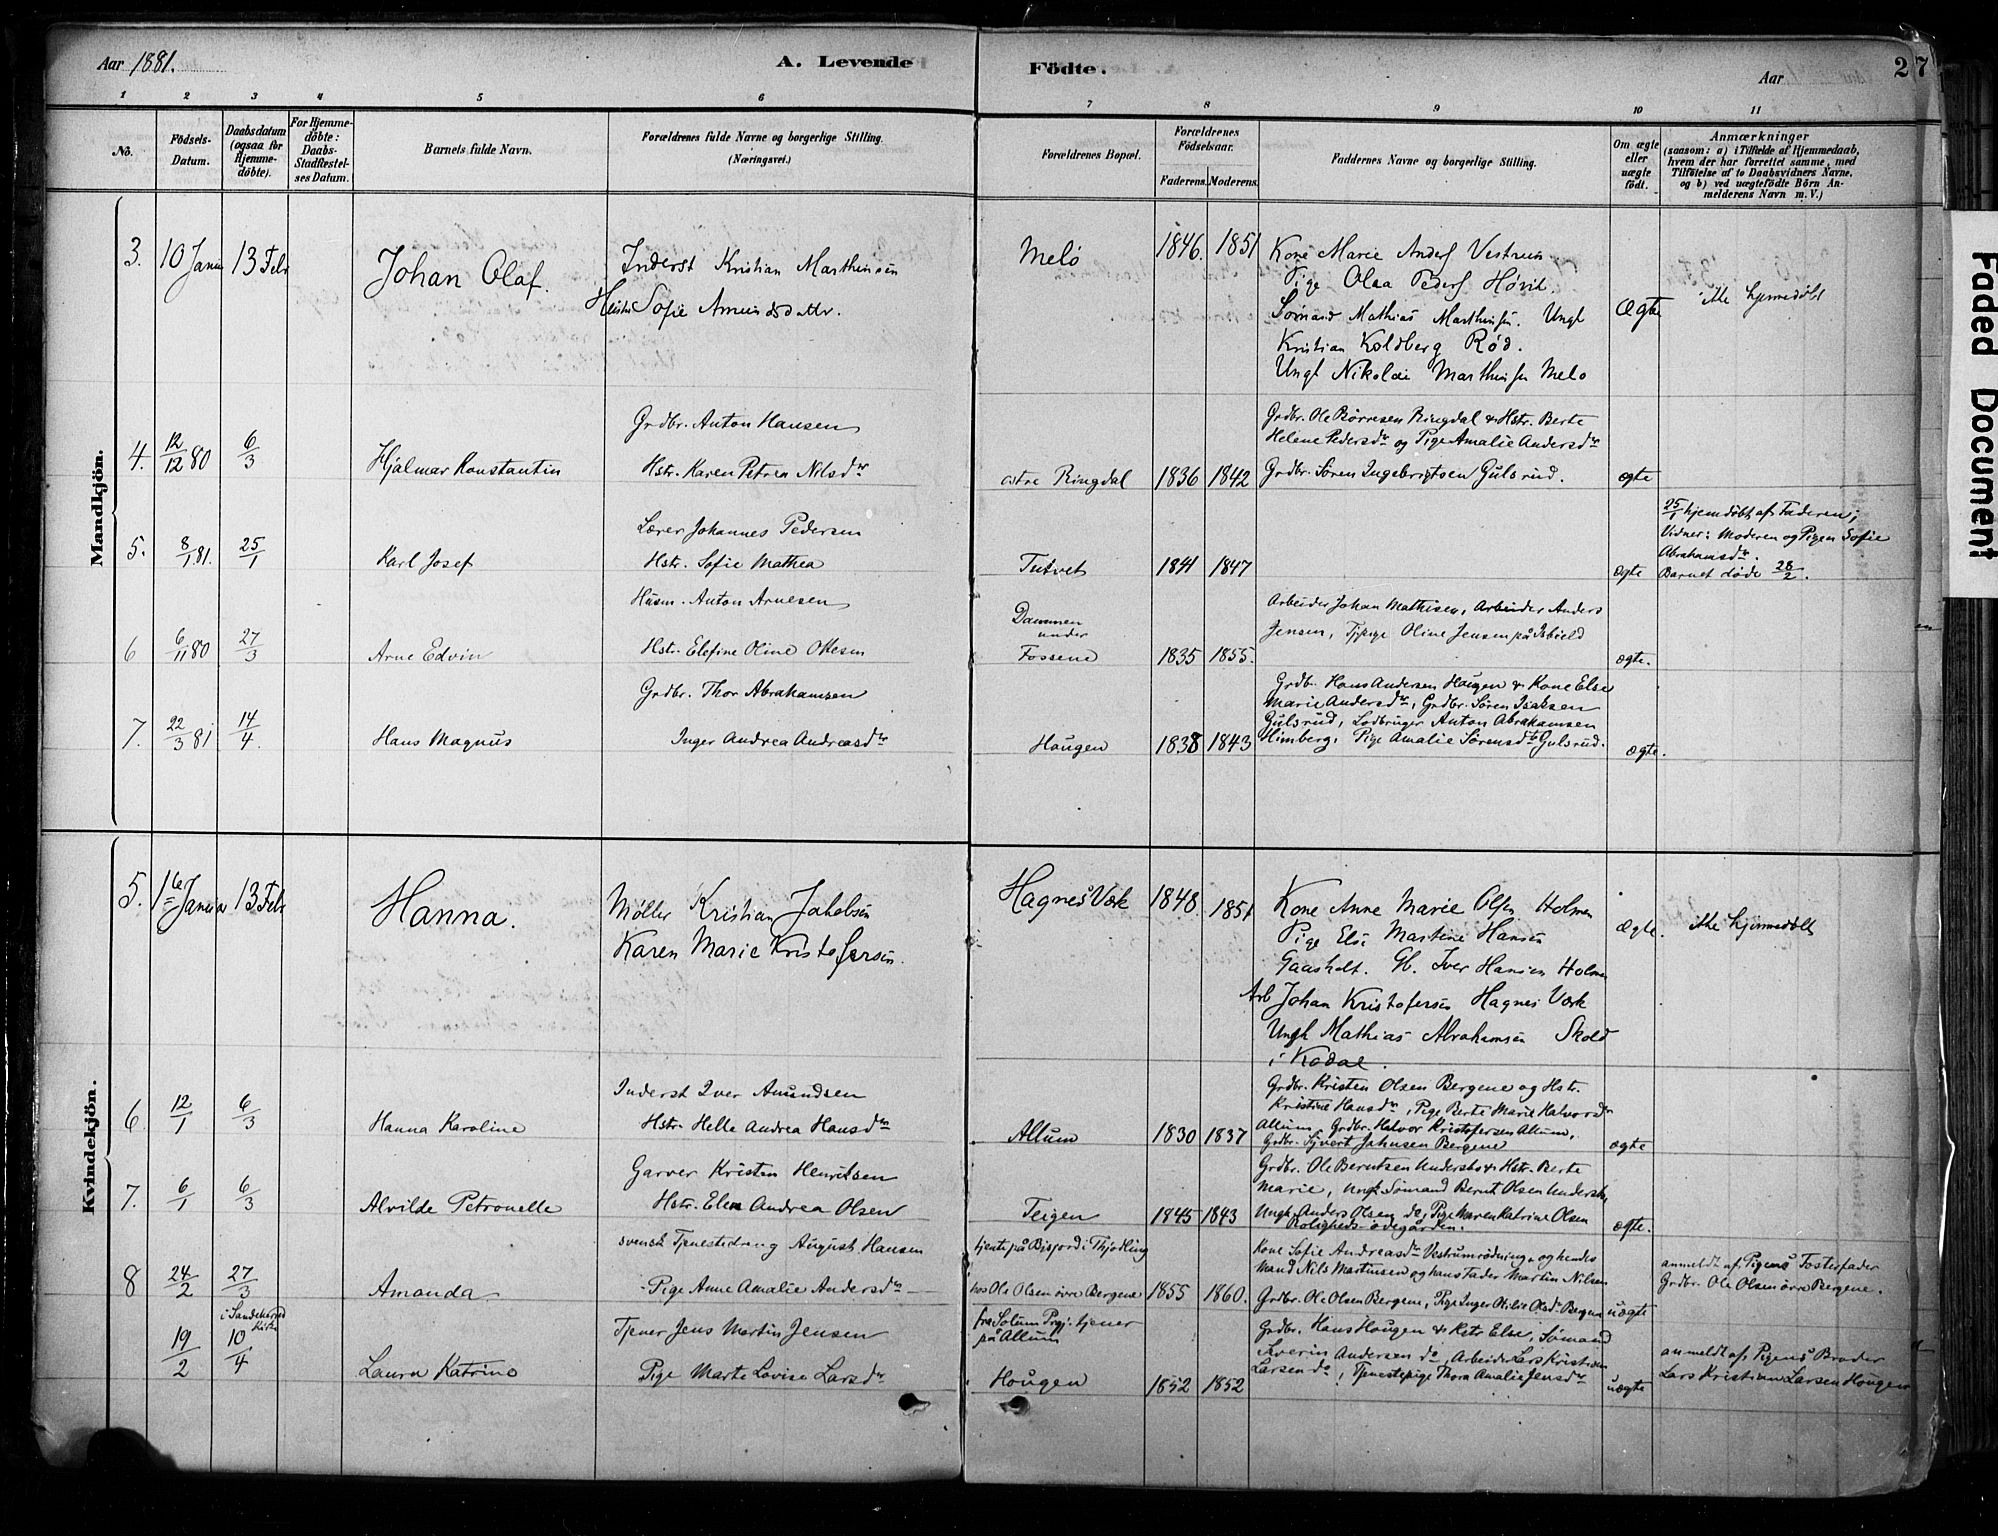 Aar 1881.
A. Levende Födte.
Aar
27
1 2 3 4 5 6 7 8 9 10 11
No.
Födsels-Datum.
Daabsdatum (ogsaa for Hjemme-döbte).
For Hjemme-döbte: Daabs-Stadfestel-ses Datum.
Barnets fulde Navn.
Forældrenes fulde Navne og borgerlige Stilling. (Næringsvei.)
Forældrenes Bopæl.
Forældrenes Födselsaar.
Faderens. Moderens.
Faddernes Navne og borgerlige Stilling.
Om ægte eller uægte födt.
Anmærkninger
(saasom: a) i Tilfælde af Hjemmedaab, hvem der har forrettet samme, med Tilföielse af to Daabsvidners Navne, og b) ved uægtefödte Börn An-melderens Navn m. V.)
Mandkjön.
3. 10 Janu 13 Febr
Johan Olaf.
Inderst Kristian Marthinsen
Hustr Sofie Amundsdattr.
Melö
1846. 1851
Kone Marie Anders Vestrum
Pige Olea Peders Hövit
Sömand Mathias Marthinsen. Ungk
Kristian Koldberg Röd.
Ungk Nikolai Marthinsen Melo
Ægte
ikke hjemmedöbt
4. 12/12 80 6/3
Hjalmar Konstantin
Grdbr. Anton Hansen
Hstr. Karen Petrea Nilsdr
östre Ringdal
1836 1842
Grdbr. Ole Börresen Ringdal & Hstr. Berte
Helene Pedersdr og Pige Amalie Andersdr
Grdbr. Sören Ingebrigtsen Gulsrud.
ægte
5. 8/1 81. 25/1
Karl Josef
Lærer Johannes Pedersen
Hstr. Sofie Mathea
Tutvet
1841 1847
ægte
25/1 hjemdöbt af Faderen;
Vidner: Moderen og Pigen Sofie
Abrahamsdr.
Barnet döde 28/2.
6 6/11 80 27/3
Arne Edvin
Husm. Anton Arnesen
Hstr. Elefine Oline Ottesen
Dammen
under
Fossene
1835 1855.
Arbeider Johan Mathisen, Arbeider Anders
Jensen, Tjpige Oline Jensen på
ægte.
7. 22/3 81 14/4.
Hans Magnus
Grdbr. Thor Abrahamsen
Inger Andrea Andreasdr
Hougen
1838 1843
Grdb. Hans Andersen Hougen & Kone Else
Marie Andersdr, Grdbr. Sören Isaksen
Gulsrud, Lodbruger Anton Abrahamsen
Himberg. Pige Amalie Sörensdtr Gulsrud.
ægte.
Kvindekjön.
5. 1te Januar 13 Febr
Hanna.
Möller Kristian Jakobsen
Karen Marie Kristofersen.
Hagnes Værk
1848. 1851
Kone Anne Marie Olsen Holmen
Pige Else Martine Hansen
Gaasholt. G. Iver Hansen Holmen
Arb Johan Kristofersen Hagnes Værk
Ungk Mathias Abrahamsen Skold
i Kodal.
Ægte.
ikke hjemmedöbt
6. 12/1 6/3
Hanna Karoline
Inderst Iver Amundsen
Hstr. Helle Andrea Hansdr
Allum
1830 1837
Grdbr. Kristen Olsen Bergene og Hstr.
Kristine Hansdr, Pige Berte Marie Halvorsdr
Allum, Grdbr. Halvor Kristofersen Allum,
Grdbr. Sjvert Jahnsen Bergene
ægte
7. 6/1 6/3
Alvilde Petronelle
Garver Kristen Henriksen
Hstr. Elen Andrea Olsen
Teigen
1845 1843
Grdbr. Ole Berntsen Undersbo & Hstr. Berte
Marie, Ungk. Sömand Bernt Olsen Undersbo,
Ungk. Anders Olsen do, Pige Maren Katrine Olsen
Roligheds-ödegården.
ægte.
8 24/2 27/3
Amanda
svensk Tjenestedreng August Hansen
Pige Anne Amalie Andersdr
tjente på Bisjord i Thjodling
hos Ole Olsen övre Bergene
1855 1860.
Kone Sofie Andreasdr Vestrumrödninge og hendes
Mand Nils Martinsen og hans Fader Martin Nilsen
Grdbr. Ole Olsen Bergene, Pige Inger Otilie Olsdr Bergene
uægte
anmeldt af Pigens Fosterfader
Grdbr. Ole Olsen övre Bergene.
19/2 i Sandeherred Kirke 10/4
Laura Katrine
Tjener Jens Martin Jensen
Pige Marte Lovise Larsdr
fra Solum Prgj. tjener
på Allum
Hougen
1852 1852
Grdbr. Hans Hougen & Kstr Else, Sömand
Sverin Andersen do, Arbeider Lars Kristian
Larsen do, Tjenestepige Thora Amalie Jensdr
uægte
anmeldt af Pigens Broder
Lars Kristian Larsen Hougen
Faded Document